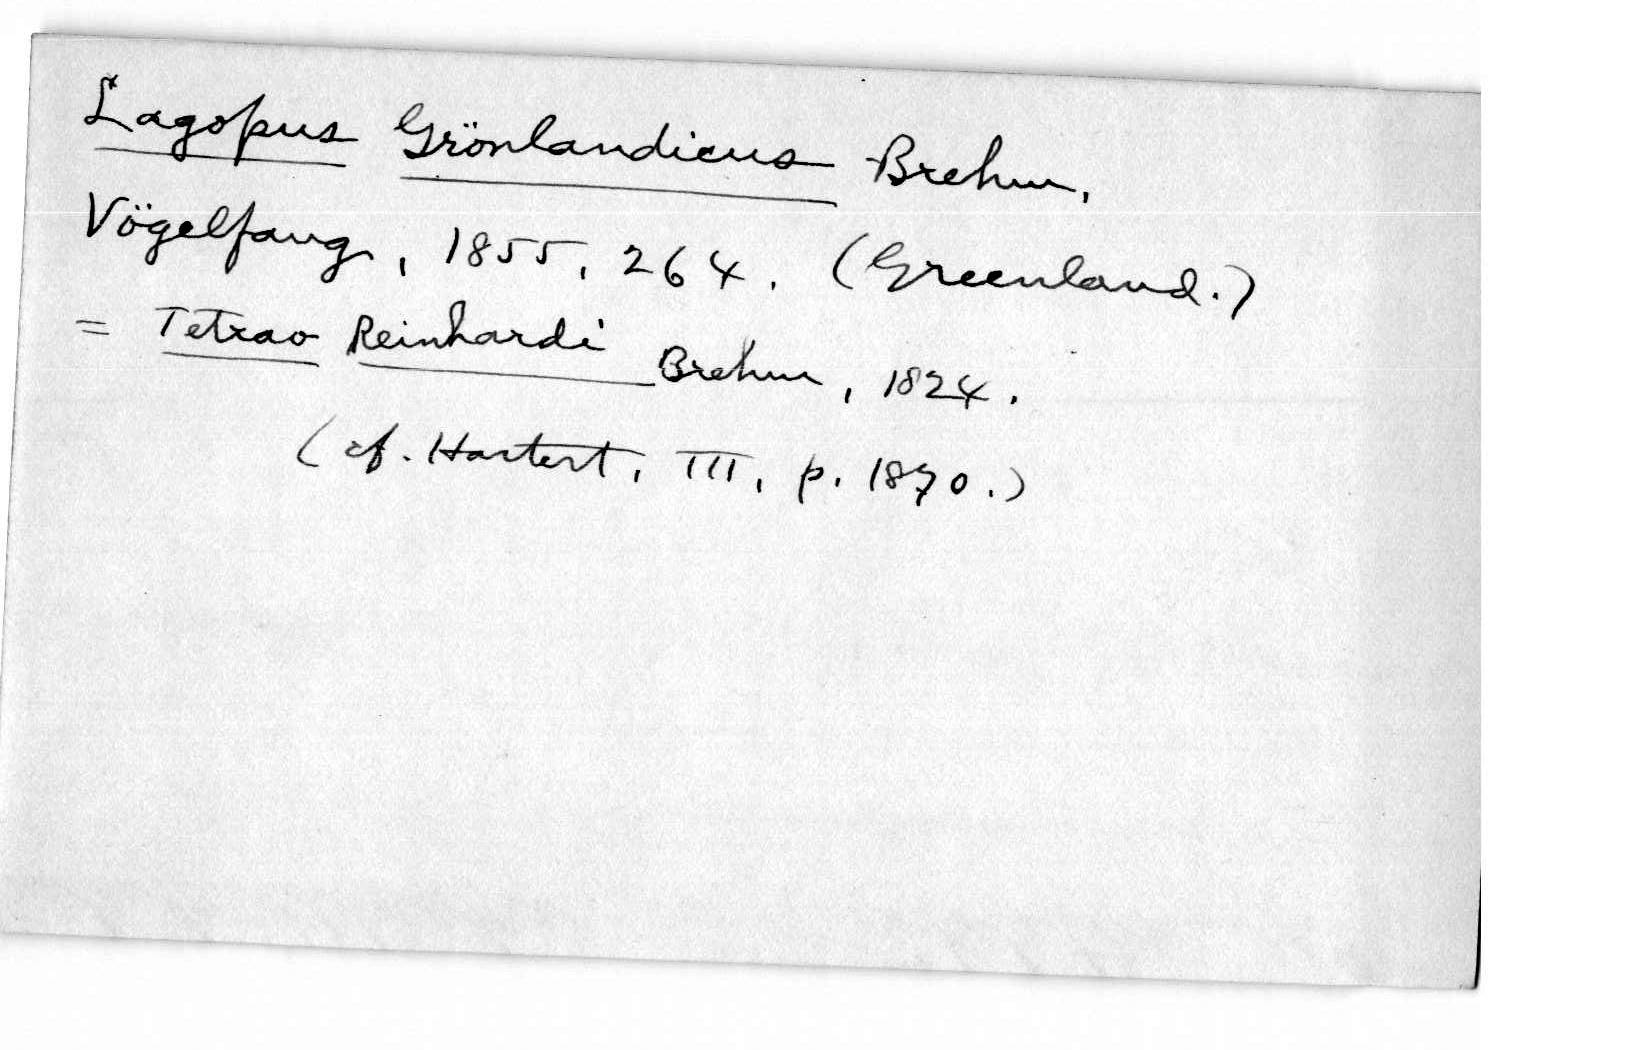 Lagopus Grönlandicus Brehm,
Vögelfang, 1855, 264. (Greenland.)
= Tetrao Reinhardi Brehm, 1824.
(cf. Hartert, III, p. 1870.)